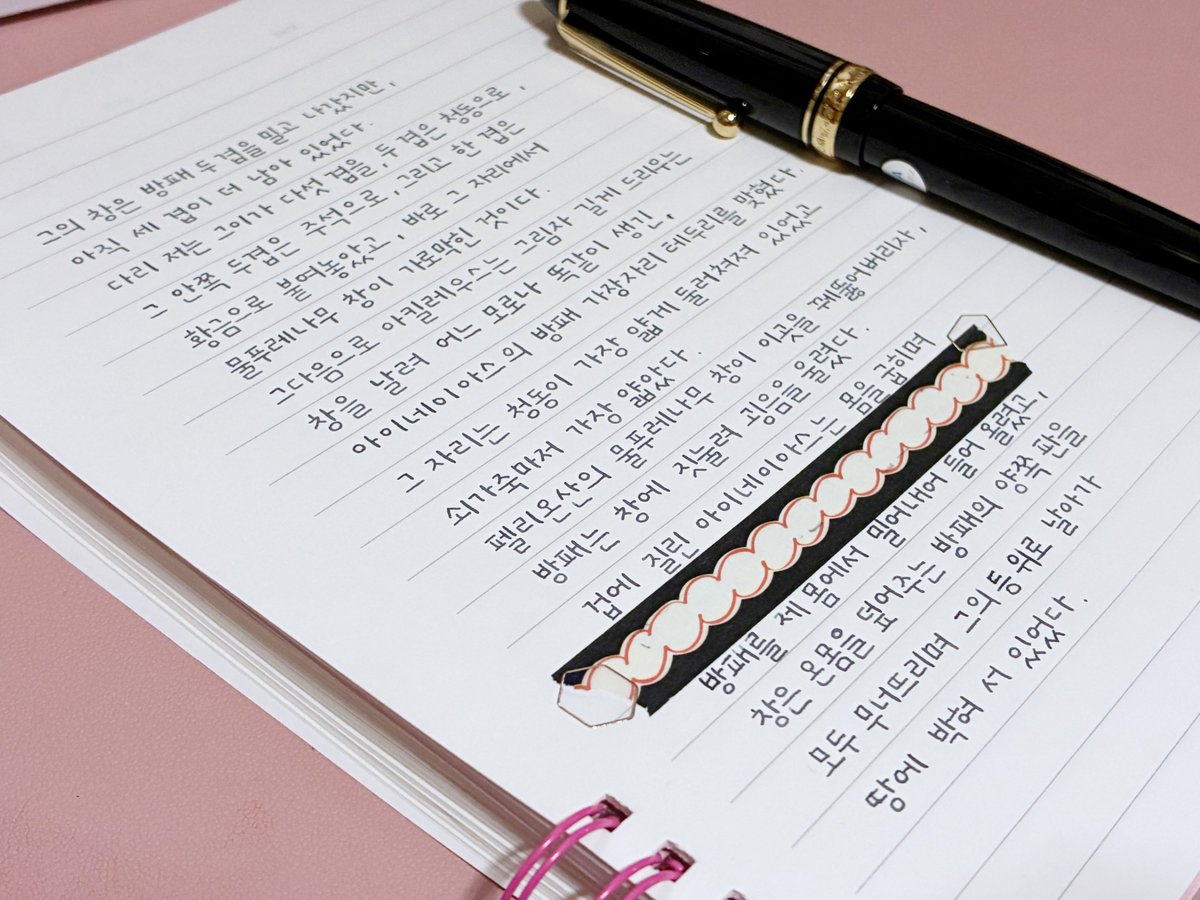 그의 창은 방패 두 겹을 밀고 나갔지만,
아직 세 겹이 더 남아 있었다.
다리 저는 그이가 다섯 겹을, 두 겹은 청동으로,
그 안쪽 두겹은 주석으로, 그리고 한 겹은
황금으로 붙여놓았고, 바로 그 자리에서
물푸레나무 창이 가로막힌 것이다.
그다음으로 아킬레우스는 그림자 길게 드리우는
창을 날려 어느 모로나 똑같이 생긴,
아이네이아스의 방패 가장자리 테두리를 맞혔다.
그 자리는 청동이 가장 얇게 둘러쳐져 있었고
쇠가죽마저 가장 얇았다.
펠리온산의 물푸레나무 창이 이곳을 꿰뚫어버리자,
방패는 창에 짓눌려 굉음을 울렸다.
겁에 질린 아이네이아스는 몸을 굽히며
방패를 제 몸에서 밀어내어 들어 올렸고,
창은 온몸을 덮어주는 방패의 양쪽 판을
모두 무너뜨리며 그의 등 위로 날아가
땅에 박혀 서 있었다.